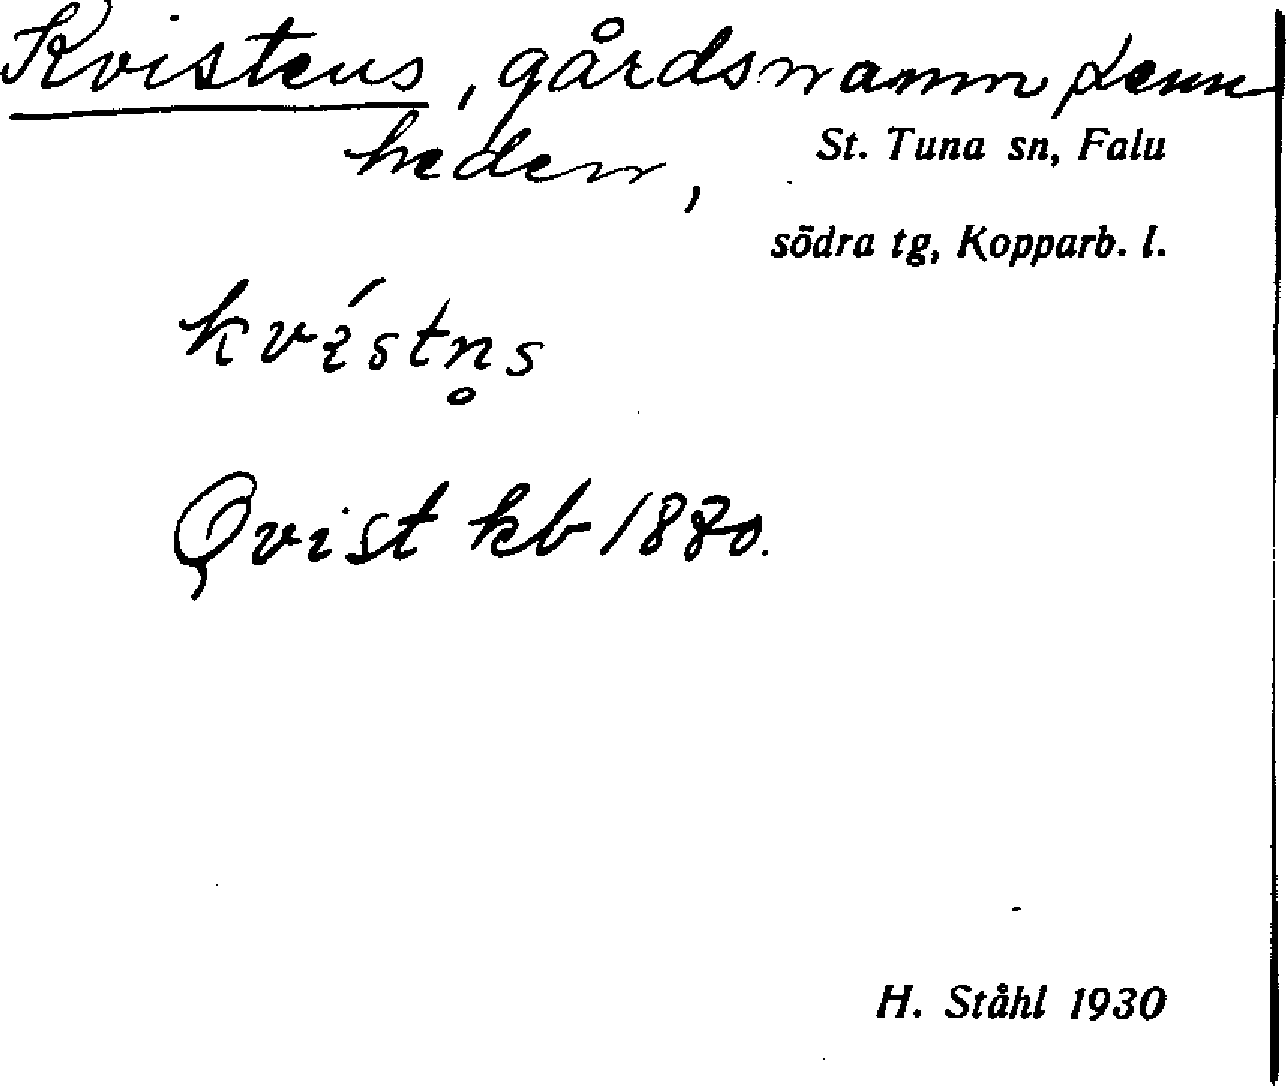 Kvistens, gårdsnamn Lenn
heden,
St. Tuna sn, Falu
södra tg, Kopparb. l.
kvístn̥s
Qvist kb 1880.
H. Ståhl 1930